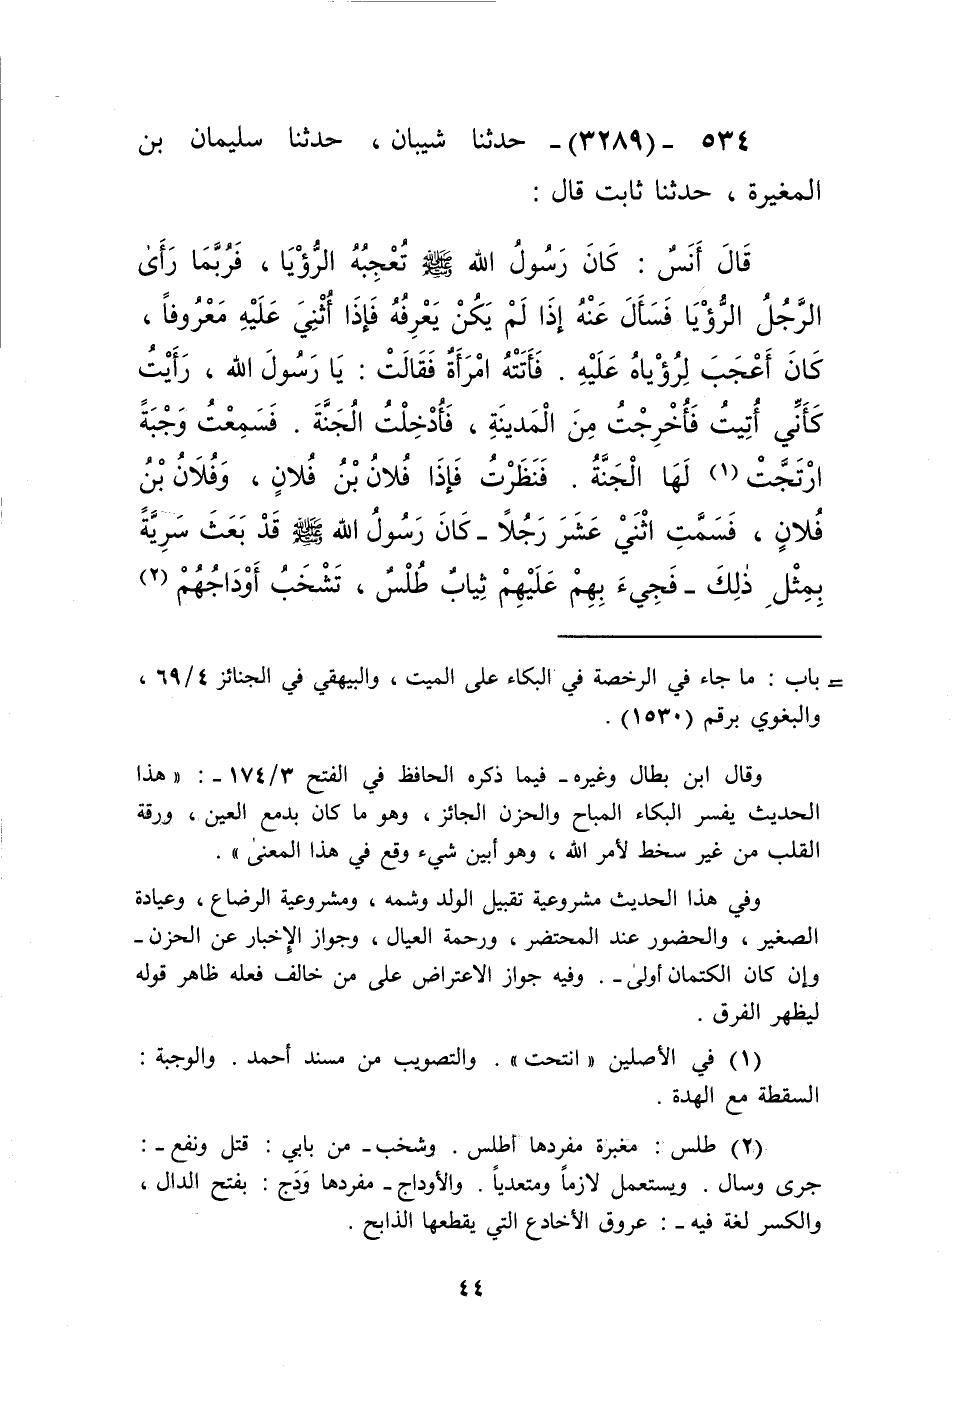 ٥٣٤ ـ (٣٢٨٩) ـ حدثنا شيبان ، حدثنا سليمان بن
المغيرة ، حدثنا ثابت قال :
قَالَ أَنَسٌ : كَانَ رَسُولُ الله ﷺ تُعْجِبُهُ الرُّؤْيَا ، فَرُبَّمَا رَأَىٰ
الرَّجُلُ الرُّؤْيَا فَسَأَلَ عَنْهُ إِذَا لَمْ يَكُنْ يَعْرِفُهُ فَإِذَا أُثْنِيَ عَلَيْهِ مَعْرُوفاً ،
كَانَ أَعْجَبَ لِرُؤْيَاهُ عَلَيْهِ . فَأَتَتْهُ امْرَأَةٌ فَقَالَتْ : يَا رَسُولَ الله ، رَأَيْتُ
كَأَنِّي أُتِيتُ فَأُخْرِجْتُ مِنَ الْمَدينَةِ ، فَأُدْخِلْتُ الْجَنَّةَ . فَسَمِعْتُ وَجْبَةً
ارْتَجَّتْ (١) لَهَا الْجَنَّةُ . فَنَظَرْتُ فَإِذَا فُلانُ بْنُ فُلانٍ ، وَفُلَانُ بْنُ
فُلانٍ ، فَسَمَّتِ اثْنَيْ عَشَرَ رَجُلاً ـ كَانَ رَسُولُ الله ﷺ قَدْ بَعَثَ سَرِيَّةً
بِمِثْلِ ذٰلِكَ ـ فَجِيءَ بِهِمْ عَلَيْهِمْ ثِيابٌ طُلْسٌ ، تَشْخَبُ أَوْدَاجُهُمْ (٢)
= باب : ما جاء في الرخصة في البكاء على الميت ، والبيهقي في الجنائز ٦٩/٤ ،
والبغوي برقم (١٥٣٠) .
وقال ابن بطال وغيره ـ فيما ذكره الحافظ في الفتح ١٧٤/٣ ـ : « هذا
الحديث يفسر البكاء المباح والحزن الجائز ، وهو ما كان بدمع العين ، ورقة
القلب من غير سخط لأمر الله ، وهو أبين شيء وقع في هذا المعنىٰ » .
وفي هذا الحديث مشروعية تقبيل الولد وشمه ، ومشروعية الرضاع ، وعيادة
الصغير ، والحضور عند المحتضر ، ورحمة العيال ، وجواز الإخبار عن الحزن ـ
وإن كان الكتمان أولىٰ ـ . وفيه جواز الاعتراض على من خالف فعله ظاهر قوله
ليظهر الفرق .
(١) في الأصلين « انتحت » . والتصويب من مسند أحمد . والوجبة :
السقطة مع الهدة .
(٢) طلس : مغبرة مفردها أطلس . وشخب ـ من بابي : قتل ونفع ـ :
جرى وسال . ويستعمل لازماً ومتعدياً . والأوداج ـ مفردها وَدَج : بفتح الدال ،
والكسر لغة فيه ـ : عروق الأخادع التي يقطعها الذابح .
٤٤